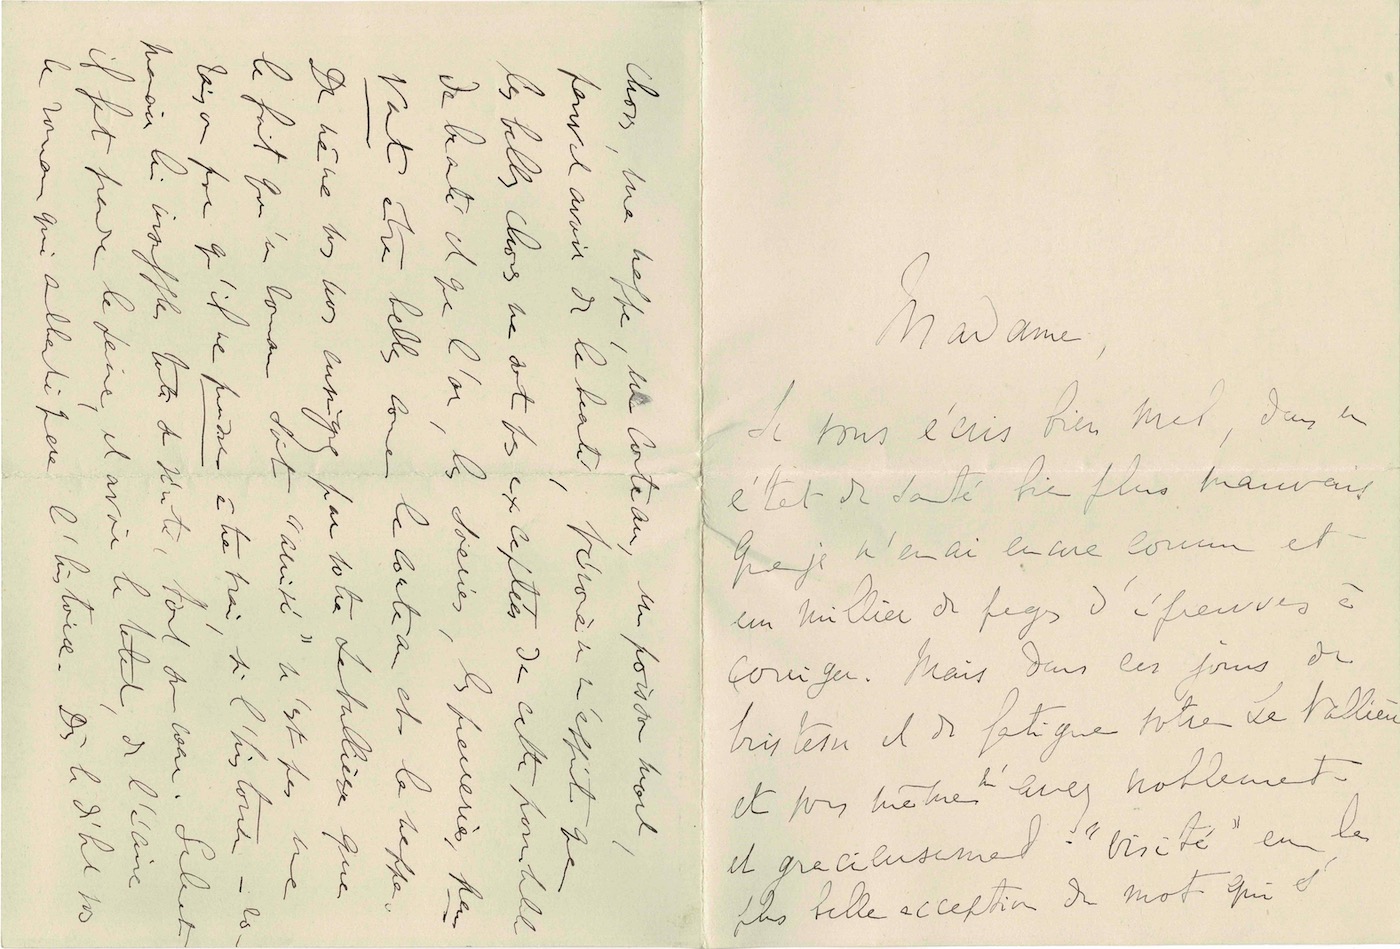 Madame,
Je vous écris bien mal, dans un
état de santé bien plus mauvais
que je n'en ai encore connu et
un millier de pages d'épreuves à
corriger. Mais dans ces jours de
tristesse et de fatigue votre La Vallière
et vous même m'avez noblement
et gracieusement "visité" en la
plus belle acception du mot qui s'
chose, une nappe, un couteau, un poisson mort,
peuvent avoir de la beauté, Véronèse que
les belles choses ne sont pas exceptées de cette possibilité
de beauté et que l'or, les soieries, les pierreries, peu
vent être belles comme le couteau et la nappe.
De même vous nous enseignez par votre La Vallière que
le fait qu'un roman soit "arrivé" n'est pas une
raison pour qu'il ne puisse être vrai, si l'historien-ro-
mancier lui insuffle toute sa vérité, tout son cœur. Seulement
il faut prendre la peine, et avoir le talent, de l'écrire
le roman qui l'histoire. Dès le début vous